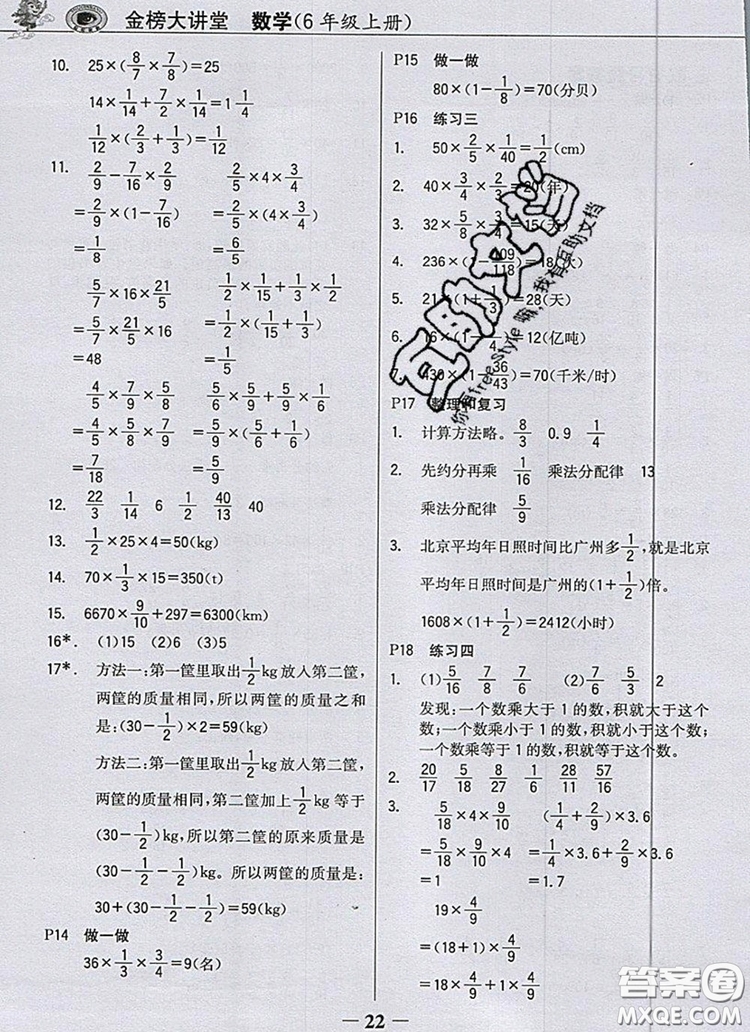 金榜大讲堂 数学(6年级上册)
10. 25×(8/7×7/8)=25
14×1/14+7/2×1/14=1 1/4
1/12×(2/3+1/3)=1/12
11. 2/9-7/16×2/9 2/5×4×3/4
=2/9×(1-7/16) =2/5×(4×3/4)
=1/8 =6/5
5/7×16×21/5 1/2×1/15+1/3×1/2
=5/7×21/5×16 =1/2×(1/15+1/3)
=48 =1/5
4/5×5/9×7/8 5/6×5/9+5/9×1/6
=4/5×7/8×5/9 =5/9×(5/6+1/6)
=7/18 =5/9
12. 22/3 1/14 6 1/2 40/13 40
13. 1/2×25×4=50(kg)
14. 70×1/3×15=350(t)
15. 6670×9/10+297=6300(km)
16*. (1)15 (2)6 (3)5
17*. 方法一:第一筐里取出1/2kg放入第二筐,
两筐的质量相同,所以两筐的质量之和
是:(30-1/2)×2=59(kg)
方法二:第一筐里取出1/2kg放入第二筐,
两筐的质量相同,第二筐加上1/2kg等于
(30-1/2)kg,所以第二筐的原来质量是
(30-1/2-1/2)kg。所以两筐的质量是:
30+(30-1/2-1/2)=59(kg)
P14 做一做
36×1/3×3/4=9(名)
P15 做一做
80×(1-1/8)=70(分贝)
P16 练习三
1. 50×2/5×1/40=1/2(cm)
2. 40×3/4×2/3=20(年)
3. 32×5/8×3/4=15(天)
4. 236×(1-109/118)=18(次)
5. 21×(1+1/3)=28(天)
6. 16×(1-1/4)=12(亿吨)
7. 430×(1-36/43)=70(千米/时)
P17 整理和复习
1. 计算方法略。 8/3 0.9 1/4
2. 先约分再乘 1/16 乘法分配律 13
乘法分配律 5/9
3. 北京平均年日照时间比广州多1/2,就是北京
平均年日照时间是广州的(1+1/2)倍。
1608×(1+1/2)=2412(小时)
P18 练习四
1. (1)5/16 7/8 7/6 (2)7/6 5/8 2
发现:一个数乘大于1的数,积就大于这个
数;一个数乘小于1的数,积就小于这个数;
一个数乘等于1的数,积就等于这个数。
2. 20/17 5/18 8/27 1/6 28/11 57/16
3. 5/18×4×9/10 (1/4+2/9)×3.6
=5/18×9/10×4 =1/4×3.6+2/9×3.6
=1 =1.7
19×4/9
=(18+1)×4/9
=18×4/9+1×4/9
=8 4/9
— 22 —
你有free style嘛,我有互助文档
答案圈
MXQE.COM